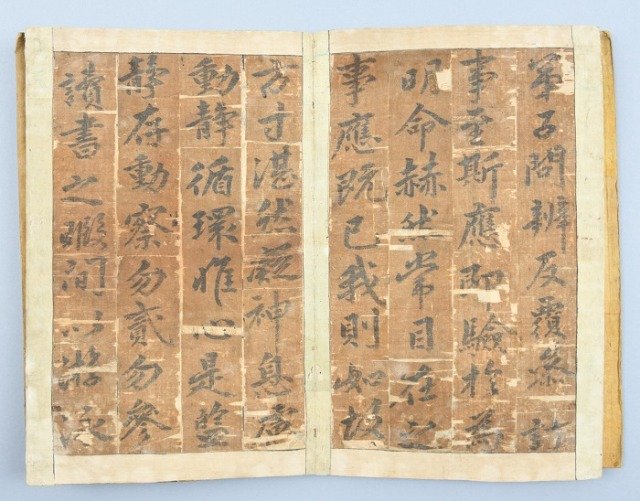 第子問辨反覆參訂
事至斯應即驗於為
明命赫然常目在之
事應既已我則如故
方寸湛然凝神息慮
動靜循環惟心是監
靜存動察勿貳勿參
讀書之暇間以游泳